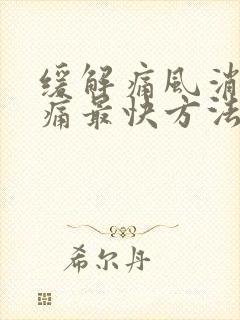 缓解痛风消
痛最快方法
希尔丹